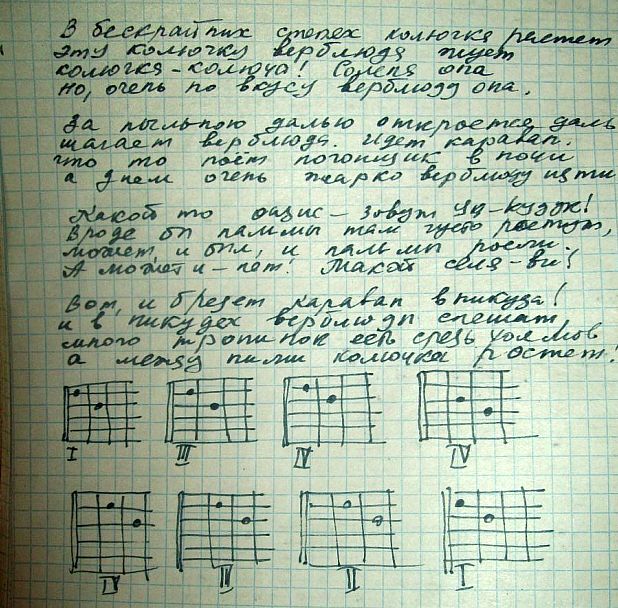 В бескрайних степях колючка растет
эту колючку верблюд жует
колючка-колюча! Солена она
но, очень по вкусу верблюду она.
За пыльною далью откроется даль
шагает верблюд. Идет караван.
что то поёт погонщик в ночи
а днем очень жарко верблюду идти
Какой то оазис - зовут
Вроде бы пальмы там густо растут,
может, и был, и пальмы росли.
А может и - нет! Такая селя-ви!
Вот, и бредет караван в никуда!
и в никудах верблюды спешат,
много тропинок есть средь холмов
а между ними колючка растет!
I III IV IV
IV III II I